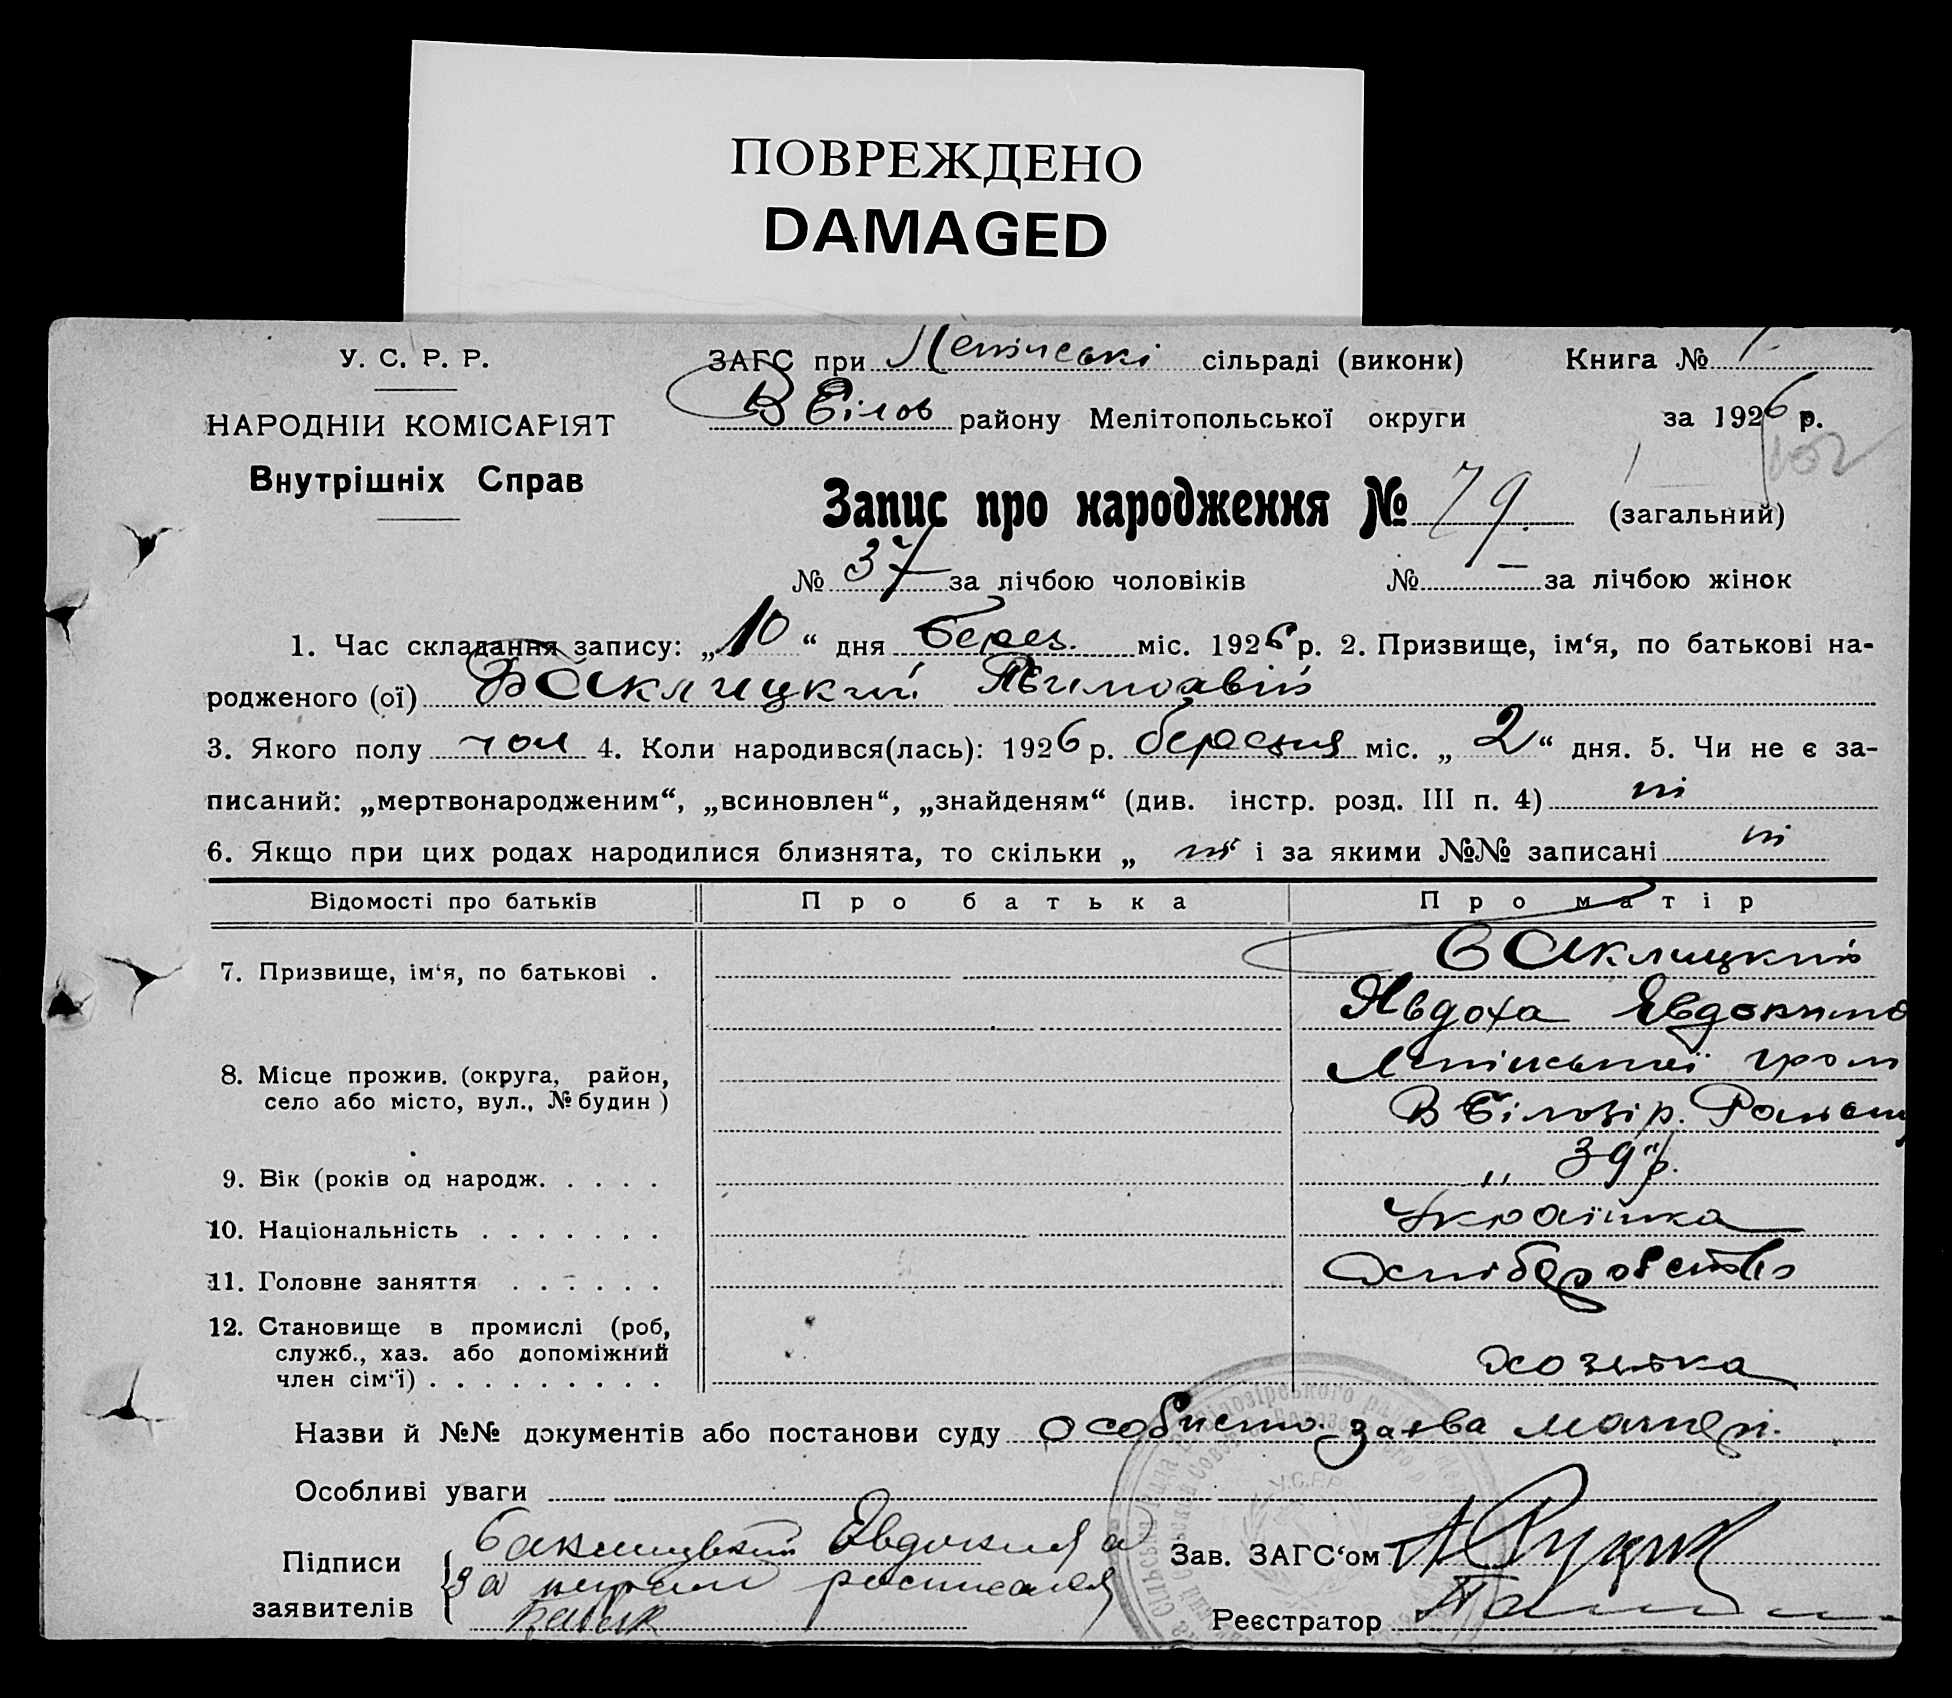 ПОВРЕЖДЕНО
DAMAGED
У. С. Р. Р.
ЗАГС при сільраді (виконк) Книга № 1.
НАРОДНІЙ КОМІСАРІЯТ
В Білоз району Мелітопольської округи за 1926 р.
102
Внутрішніх Справ
Запис про народження № 79. (загальний)
№ 37 за лічбою чоловіків № — за лічбою жінок
1. Час складання запису: „10“ дня берез. міс. 1926 р. 2. Призвище, ім‘я, по батькові на-
родженого (ої) Баклицкий
3. Якого полу чол 4. Коли народився(лась): 1926 р. березня міс. „2“ дня. 5. Чи не є за-
писаний: „мертвонародженим“, „всиновлен“, „знайденям“ (див. інстр. розд. III п. 4) ні
6. Якщо при цих родах народилися близнята, то скільки „ ні і за якими №№ записані ні
Відомості про батьків Про батька Про матір
7. Призвище, ім‘я, по батькові . Баклицкий
Явдоха Евдокимо
8. Місце прожив. (округа, район,
село або місто, вул., № будин)
В Білозір.
9. Вік (років од народж. . . . . „ 39 р.
10. Національність . . . . . . . Українка
11. Головне заняття . . . . . .
12. Становище в промислі (роб,
служб., хаз. або допоміжний
член сім‘ї) . . . . . . . . . хозяйка
Назви й №№ документів або постанови суду особисто заява матері.
Особливі уваги
У.С.Р.Р.
Підписи Евдокия а Зав. ЗАГС‘ом
заявителів за росписался
Реєстратор